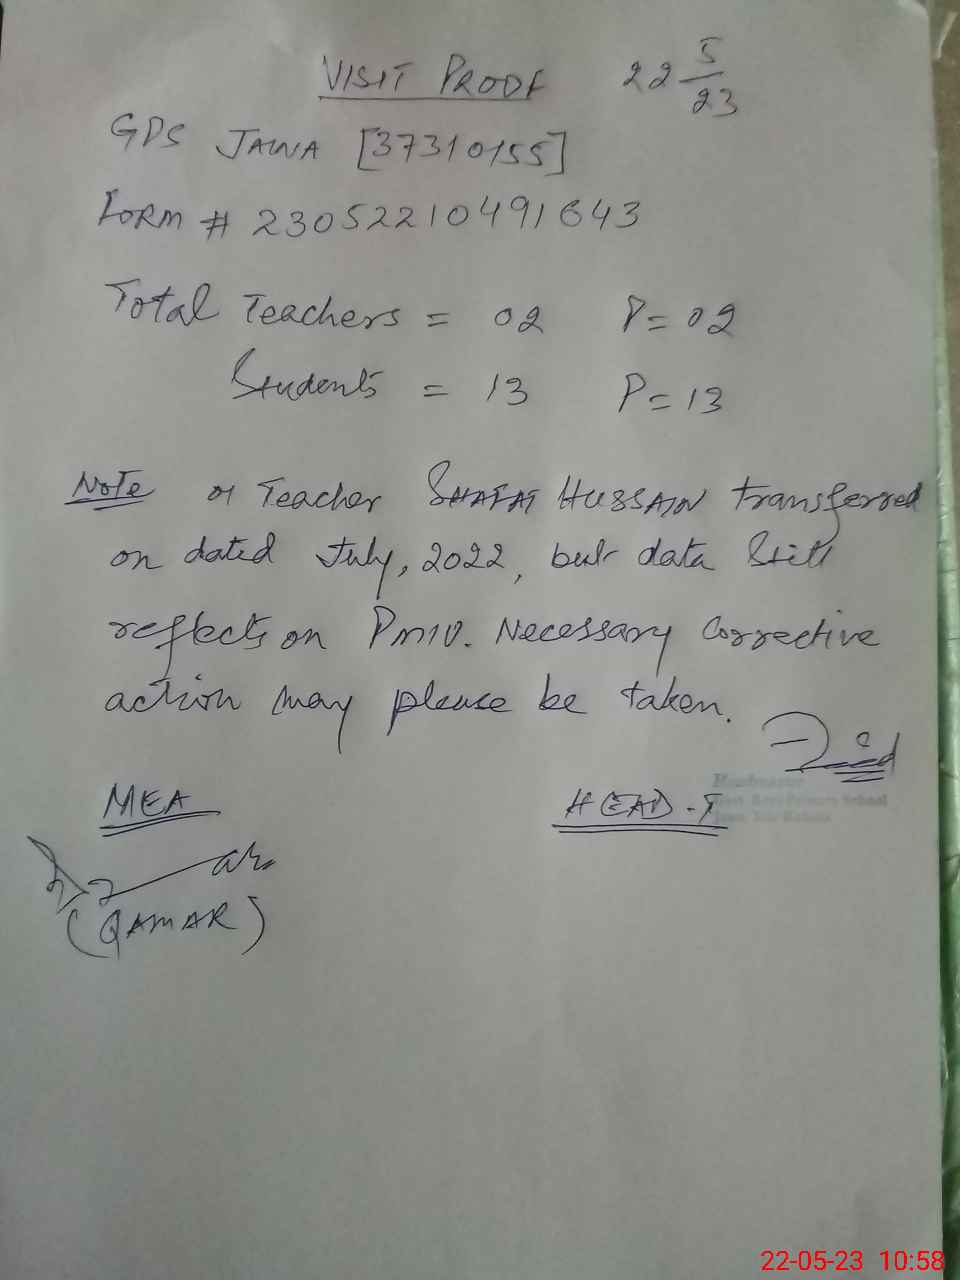 VISIT PROOF 22 5/23
GPS JAWA [37310155]
FORM # 23052210491643
Total Teachers = 02 P= 02
Students = 13 P= 13
Note 01 Teacher SHAFAT HUSSAIN transferred
on dated July, 2022, but data still
reflects on PMIU. Necessary Corrective
action may please be taken.
MEA HEAD-T
Headmaster
Govt. Boys Primary School
(QAMAR)
22-05-23 10:58